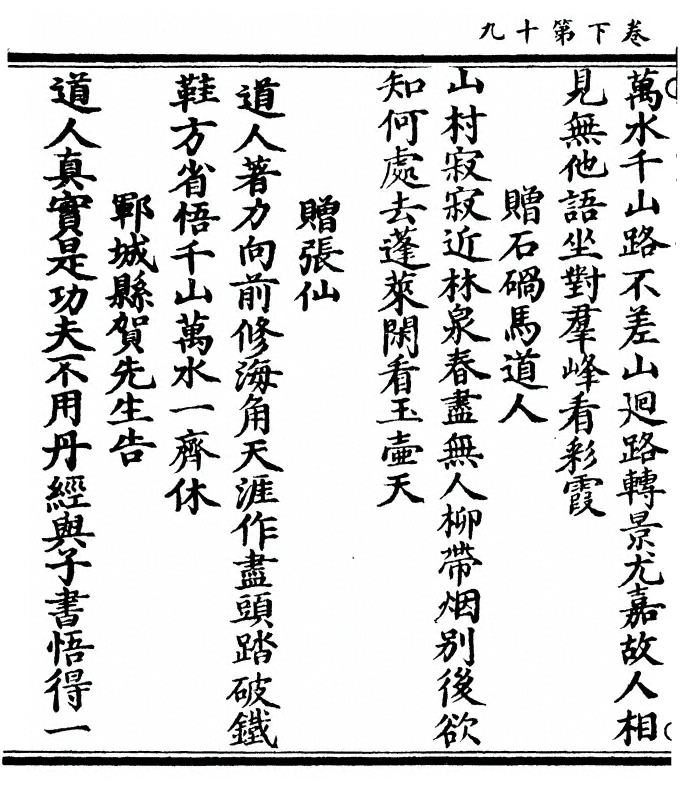 卷下第十九
萬水千山路不差山迴路轉景尤嘉故人相
見無他語坐對羣峰看彩霞
贈石碢馬道人
山村寂寂近林泉春盡無人柳帶烟別後欲
知何處去蓬萊閑看玉壺天
贈張仙
道人著力向前修海角天涯作盡頭踏破鐵
鞋方省悟千山萬水一齊休
鄆城縣賀先生告
道人真實是功夫不用丹經與子書悟得一